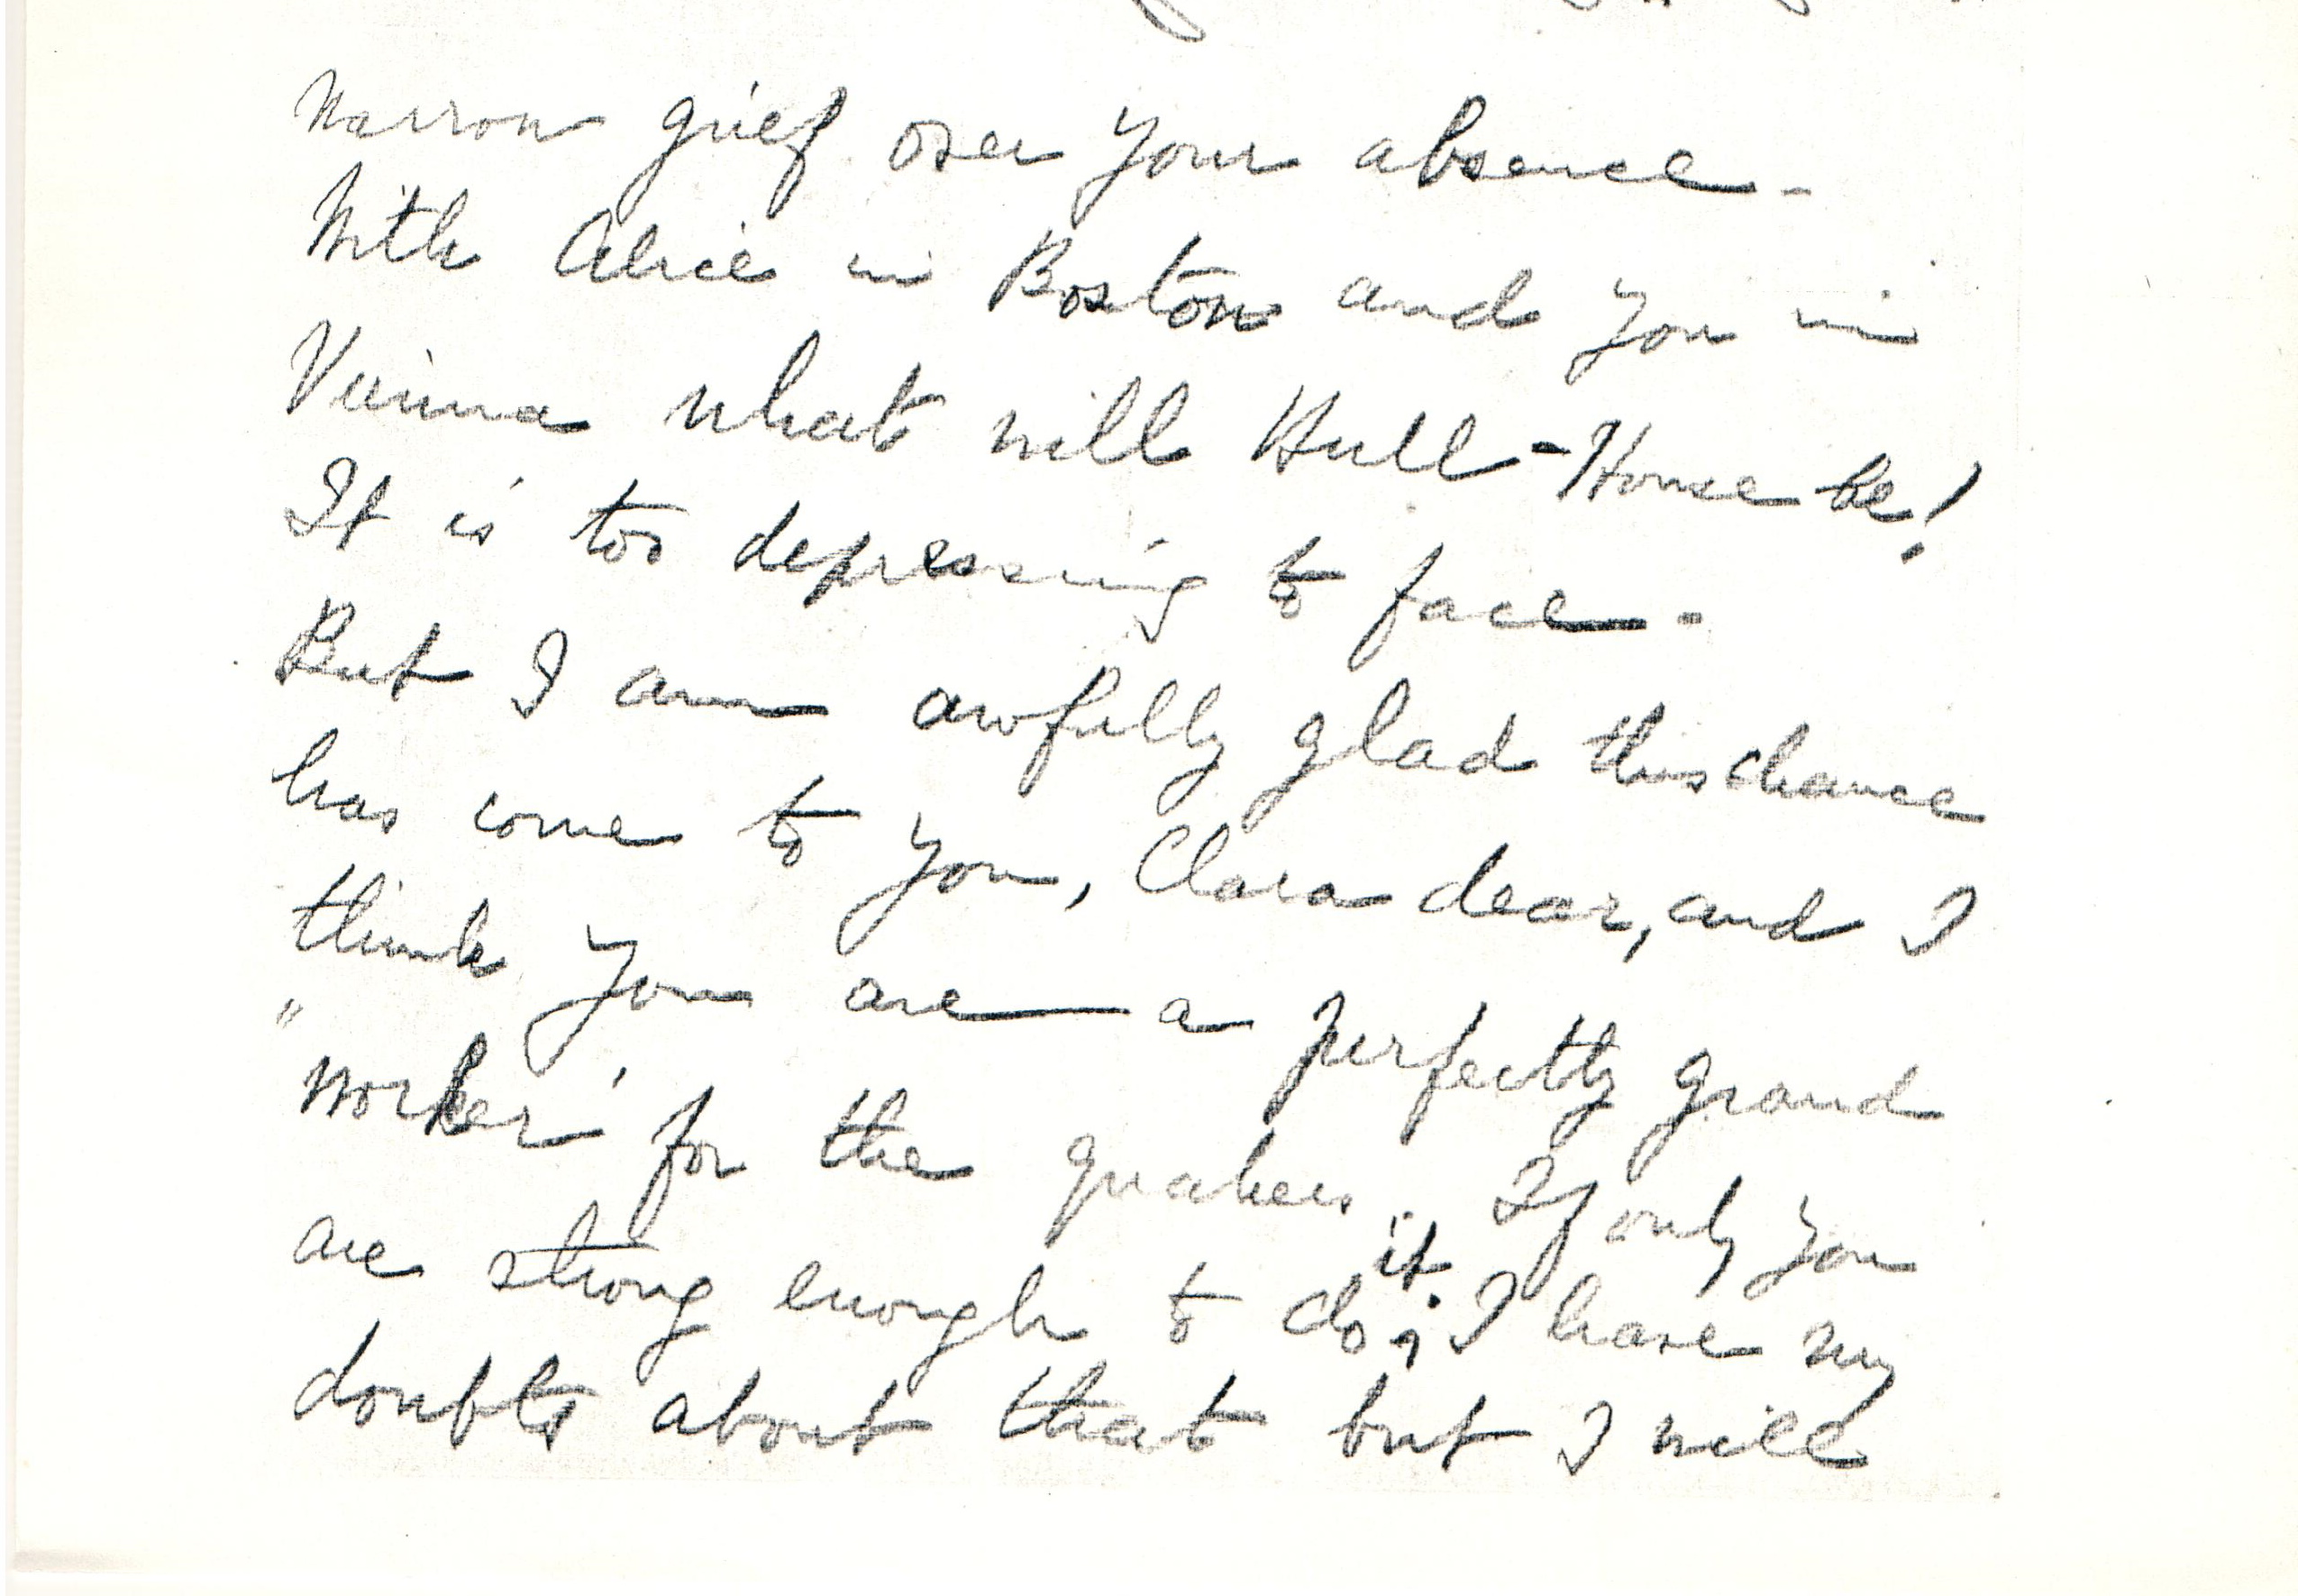 narrow grief over your absence -
With Alice in Boston and you in
Vienna what will Hull-House be!
It is too depressing to face -
But I am awfully glad this chance
has come to you, Clara dear, and I
think you are a perfectly grand
"worker' for the quakers. If only you
are strong enough to do it. I have my
doubts about that but I will